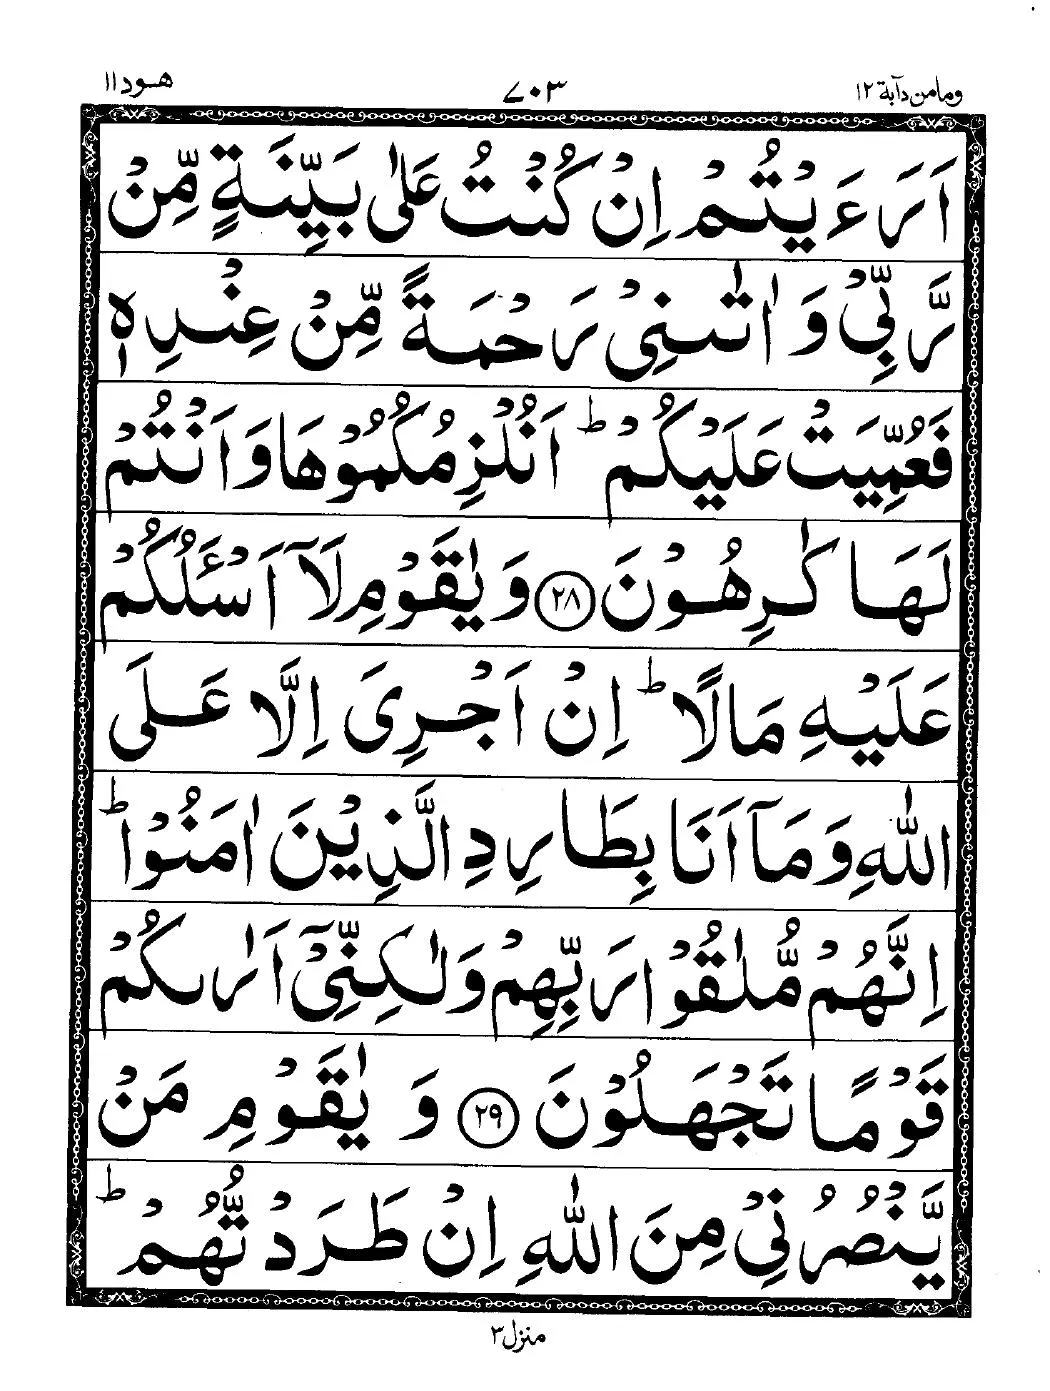 ومامن دآبة ١٢ ٧٠٣ هود ١١
اَرَءَيْتُمْ اِنْ كُنْتُ عَلٰى بَيِّنَةٍ مِّنْ
رَّبِّيْ وَ اٰتٰىنِيْ رَحْمَةً مِّنْ عِنْدِهٖ
فَعُمِّيَتْ عَلَيْكُمْ ؕ اَنُلْزِمُكُمُوْهَا وَ اَنْتُمْ
لَهَا كٰرِهُوْنَ ﴿٢٨﴾ وَ يٰقَوْمِ لَاۤ اَسْـَٔلُكُمْ
عَلَيْهِ مَالًا ؕ اِنْ اَجْرِيَ اِلَّا عَلَى
اللّٰهِ وَ مَاۤ اَنَا بِطَارِدِ الَّذِيْنَ اٰمَنُوْا ؕ
اِنَّهُمْ مُّلٰقُوْا رَبِّهِمْ وَ لٰكِنِّيْۤ اَرٰىكُمْ
قَوْمًا تَجْهَلُوْنَ ﴿٢٩﴾ وَ يٰقَوْمِ مَنْ
يَّنْصُرُنِيْ مِنَ اللّٰهِ اِنْ طَرَدْتُّهُمْ ؕ
منزل ٣